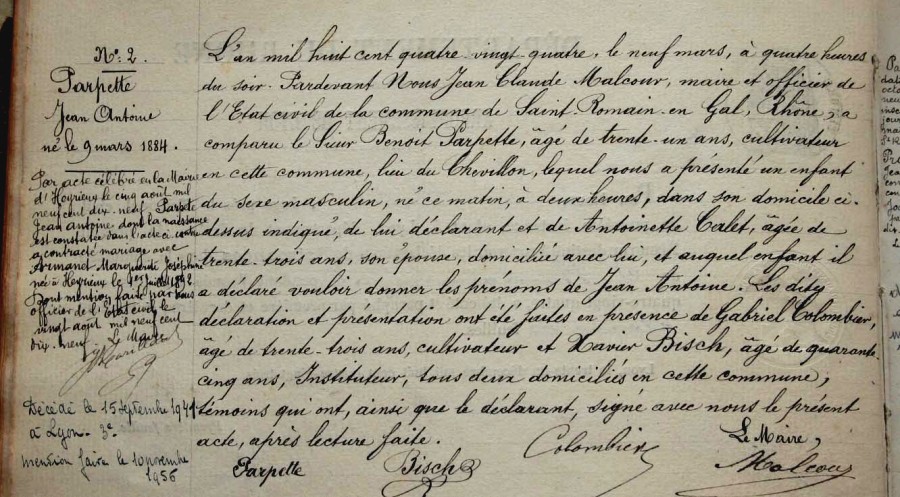 N° 2.
Parpette
Jean Antoine
né le 9 mars 1884.
Par acte célébré en la Mairie
d'Heyrieux le cinq août mil
neuf cent dix-neuf Parpette
Jean Antoine dont la naissance
est constatée dans l'acte ci-contre
a contracté mariage avec
Armanet Marguerite Joséphine
née à Heyrieux le 1er juillet 1892.
Dont mention faite par nous
officier de l'Etat civil le
vingt août mil neuf cent
dix-neuf. Le Maire
Décédé le 15 septembre
à Lyon. 3e
mention faite le 10 novembre
1956
L'an mil huit cent quatre vingt quatre, le neuf mars, à quatre heures
du soir. Pardevant Nous Jean Claude Malcour, maire et officier de
l'Etat civil de la commune de Saint-Romain-en Gal, Rhône, a
comparu le Sieur Benoit Parpette, âgé de trente-un ans, cultivateur
en cette commune, lieu du Chevillon, lequel nous a présenté un enfant
du sexe masculin, né ce matin, à deux heures, dans son domicile ci-
dessus indiqué, de lui déclarant et de Antoinette Calet, âgée de
trente-trois ans, son épouse, domiciliée avec lui, et auquel enfant il
a déclaré vouloir donner les prénoms de Jean Antoine. Les dites
déclaration et présentation ont été faites en présence de Gabriel Colombier,
âgé de trente-trois ans, cultivateur et Xavier Bisch, âgé de quarante-
cinq ans, Instituteur, tous deux domiciliés en cette commune,
témoins qui ont, ainsi que le déclarant, signé avec nous le présent
acte, après lecture faite.
Colombier
Le Maire,
Parpette
Bisch
Malcour